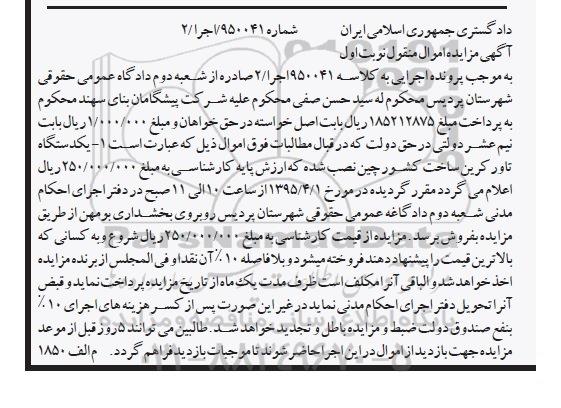 دادگستری جمهوری اسلامی ایران شماره ۹۵۰۰۴۱/اجرا/۲
آگهی مزایده اموال منقول نوبت اول
به موجب پرونده اجرایی به کلاسه ۹۵۰۰۴۱اجرا/۲صادره از شعبه دوم دادگاه عمومی حقوقی
شهرستان پردیس محکوم له سید حسن صفی محکوم علیه شرکت پیشگامان بنای سهند محکوم
به پرداخت مبلغ ۱۸۵۲۱۲۸۷۵ ریال بابت اصل خواسته در حق خواهان و مبلغ ۱/۰۰۰/۰۰۰ ریال بابت
نیم عشر دولتی در حق دولت که در قبال مطالبات فوق اموال ذیل که عبارت است ۱- یکدستگاه
تاور کرین ساخت کشور چین نصب شده که ارزش پایه کارشناسی به مبلغ ۲۵۰/۰۰۰/۰۰۰ ریال
اعلام می گردد مقرر گردیده در مورخ ۱۳۹۵/۴/۱از ساعت ۱۰الی ۱۱ صبح در دفتر اجرای احکام
مدنی شعبه دوم دادگاغه عمومی حقوقی شهرستان پردیس روبروی بخشداری بومهن از طریق
مزایده بفروش برسد . مزایده از قیمت کارشناسی به مبلغ ۲۵۰/۰۰۰/۰۰۰ریال شروع و به کسانی که
بالاترین قیمت را پیشنهاد دهند فروخته میشود و بلافاصله ۱۰٪ آن نقدا و فی المجلس از برنده مزایده
اخذ خواهد شد و الباقی آنرا مکلف است ظرف مدت یک ماه از تاریخ مزایده پرداخت نماید و قبض
آنرا تحویل دفتر اجرای احکام مدنی نماید در غیر این صورت پس از کسر هزینه های اجرای ۱۰٪
بنفع صندوق دولت ضبط و مزایده باطل و تجدید خواهد شد. طالبین می توانند ۵روز قبل از موعد
مزایده جهت بازدید از اموال در این اجرا حاضر شوند تا موجبات بازدید فراهم گردد. م الف ۱۸۵۰